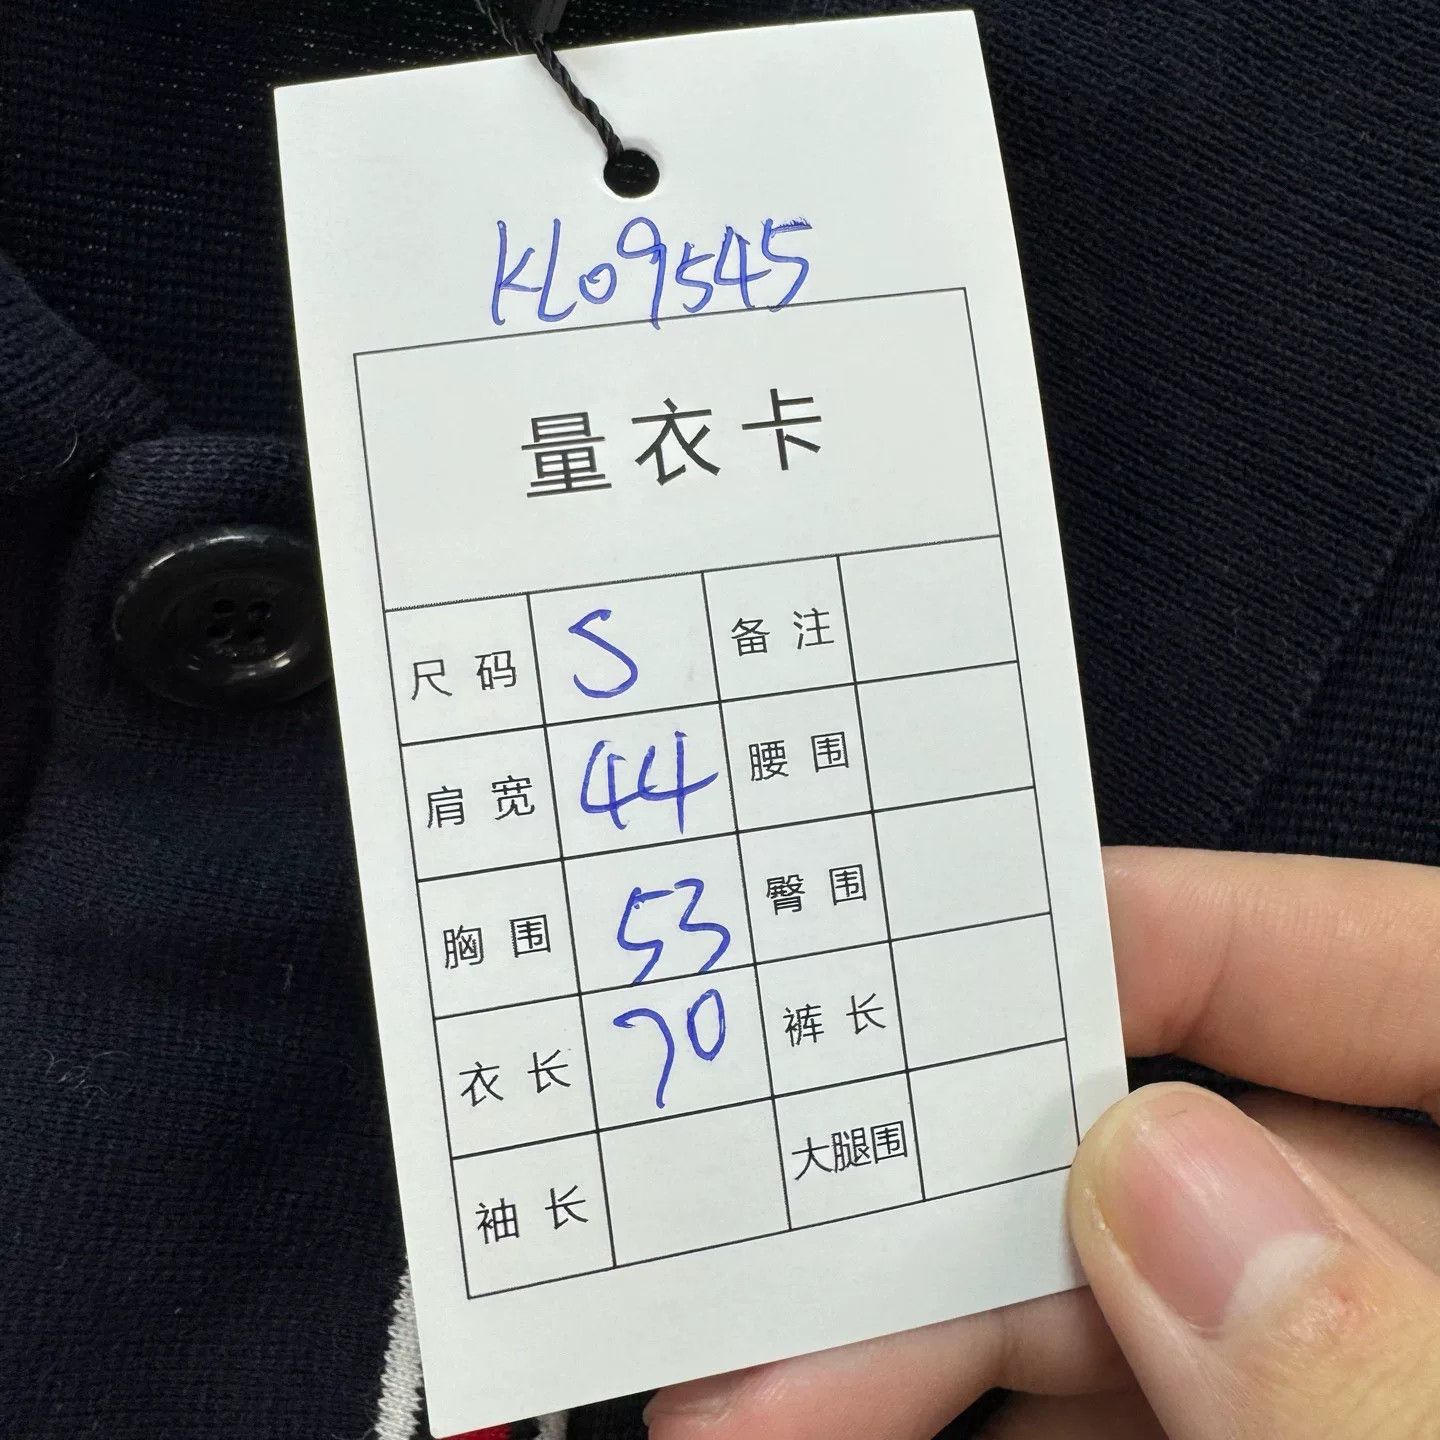 KL09545
量衣卡
尺码 S 备注
肩宽 44 腰围
胸围 53 臀围
衣长 70 裤长
袖长 大腿围